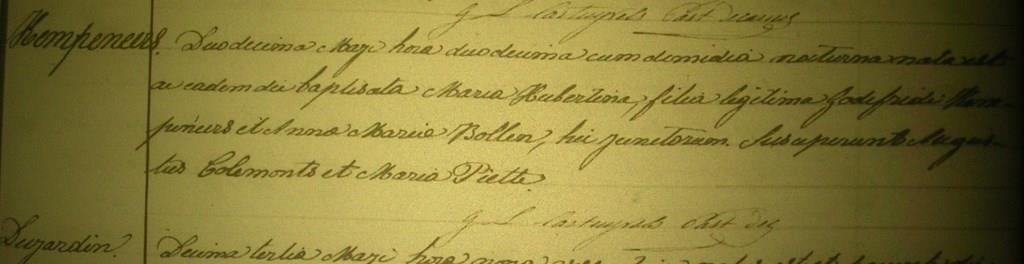 G L Cartuyvels Past Decanus
Hempeneers. Duodecima Maji hora duodecima cum domidia nocturna nata est
ac eadem die baptisata Maria Hubertina, filia legitima Godefridi Hem-
peneers et Anna Maria Bollen, hic junctorum. Susceperunt Augus-
tus Colemonts et Maria Piette.
G L Cartuyvels Past Dec
Dujardin. Decima tertia Maji hora nona